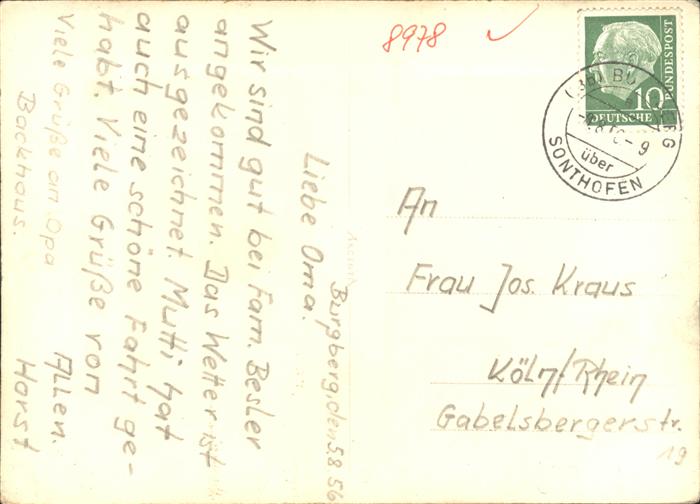 Burgberg, den 5.8.56
Liebe Oma.
Wir sind gut bei Fam. Besler
angekommen. Das Wetter ist
ausgezeichnet. Mutti hat
auch eine schöne Fahrt ge-
habt. Viele Grüße von
Allen.
Horst
Viele Grüße an Opa
Backhaus.
8978
DEUTSCHE
BUNDESPOST
10
über
SONTHOFEN
An
Frau Jos. Kraus
Köln/Rhein
Gabelsbergerstr.
19